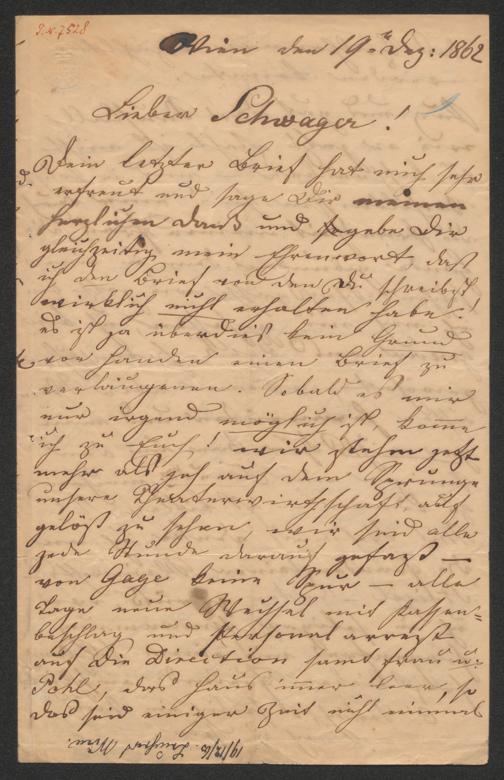 I.N. 7528
Wien den 19ten Dez: 1862
Lieber Schwager!
Dein letzter Brief hat mich sehr
erfreut und sage Dir meinen
herzlichen Dank und gebe Dir
gleichzeitig mein Ehrenwort, daß
ich den Brief von den Du schreibst
wirklich nicht erhalten habe!
es ist ja überdieß kein Grund
vorhanden einen Brief zu
verläugenen. Sobald es mir
nur irgend möglich ist, komme
ich zu Euch! wir stehen jetzt
mehr als je auf dem Sprunge
unsere Theaterwirthschaft auf
gelöst zu sehen, wir sind alle
jede Stunde darauf gefaßt –
von Gage keine Spur – alle
Tage neue Wechsel mit Kassen=
beschlag und Personalarrest
auf die Direction samt Frau u:
Pohl, das Haus immer leer, so
daß seid einiger Zeit nicht einmal
19/12/62
Wien.